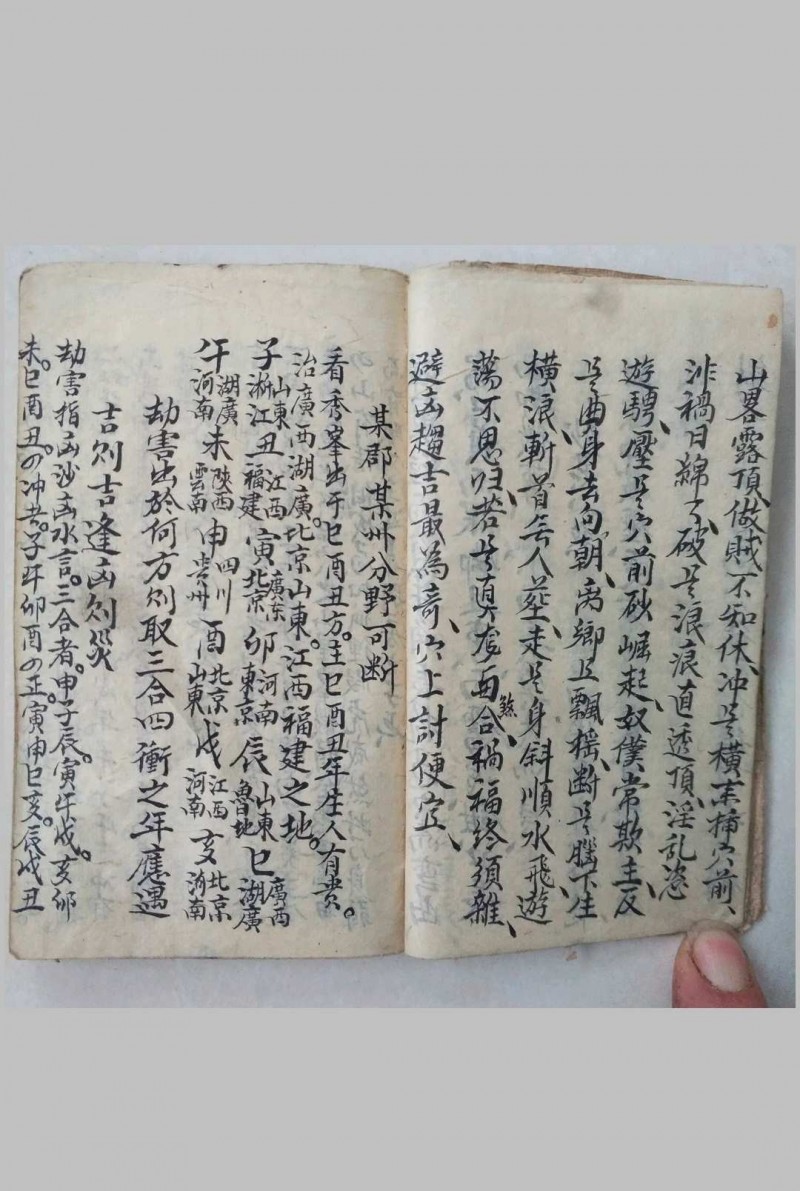 山畧露頂、做賊不知休、冲是橫來撞穴前、
非禍日綿々、破是浪痕直透頂、淫乱恣
遊騁、壓是穴前砂崛起、奴僕常欺主、反
是曲身去向朝、离鄉且飄摇、断是腦下生
橫浪、斬首무人葬、走是身斜順水飛、遊
蕩不思归、若是真龙面合煞、禍福終須雜、
避凶趨吉最為奇、穴上討便宜、
某郡某州分野可断
看秀峯出于巳酉丑方。主巳酉丑年生人有貴。
治廣西湖廣。北京山東。江西福建之地。
子山東浙江丑江西福建寅廣东北京卯河南東京辰山東魯地巳廣西湖廣
午湖廣河南未陝西雲南申四川贵州酉北京山東戌江西河南亥北京河南
劫害出於何方則取三合四衝之年應遇
吉則吉逢凶則災
劫害指凶沙凶水言。三合者。申子辰。寅午戌。亥卯
未。巳酉丑。四冲者。子午卯酉四正。寅申巳亥。辰戌丑